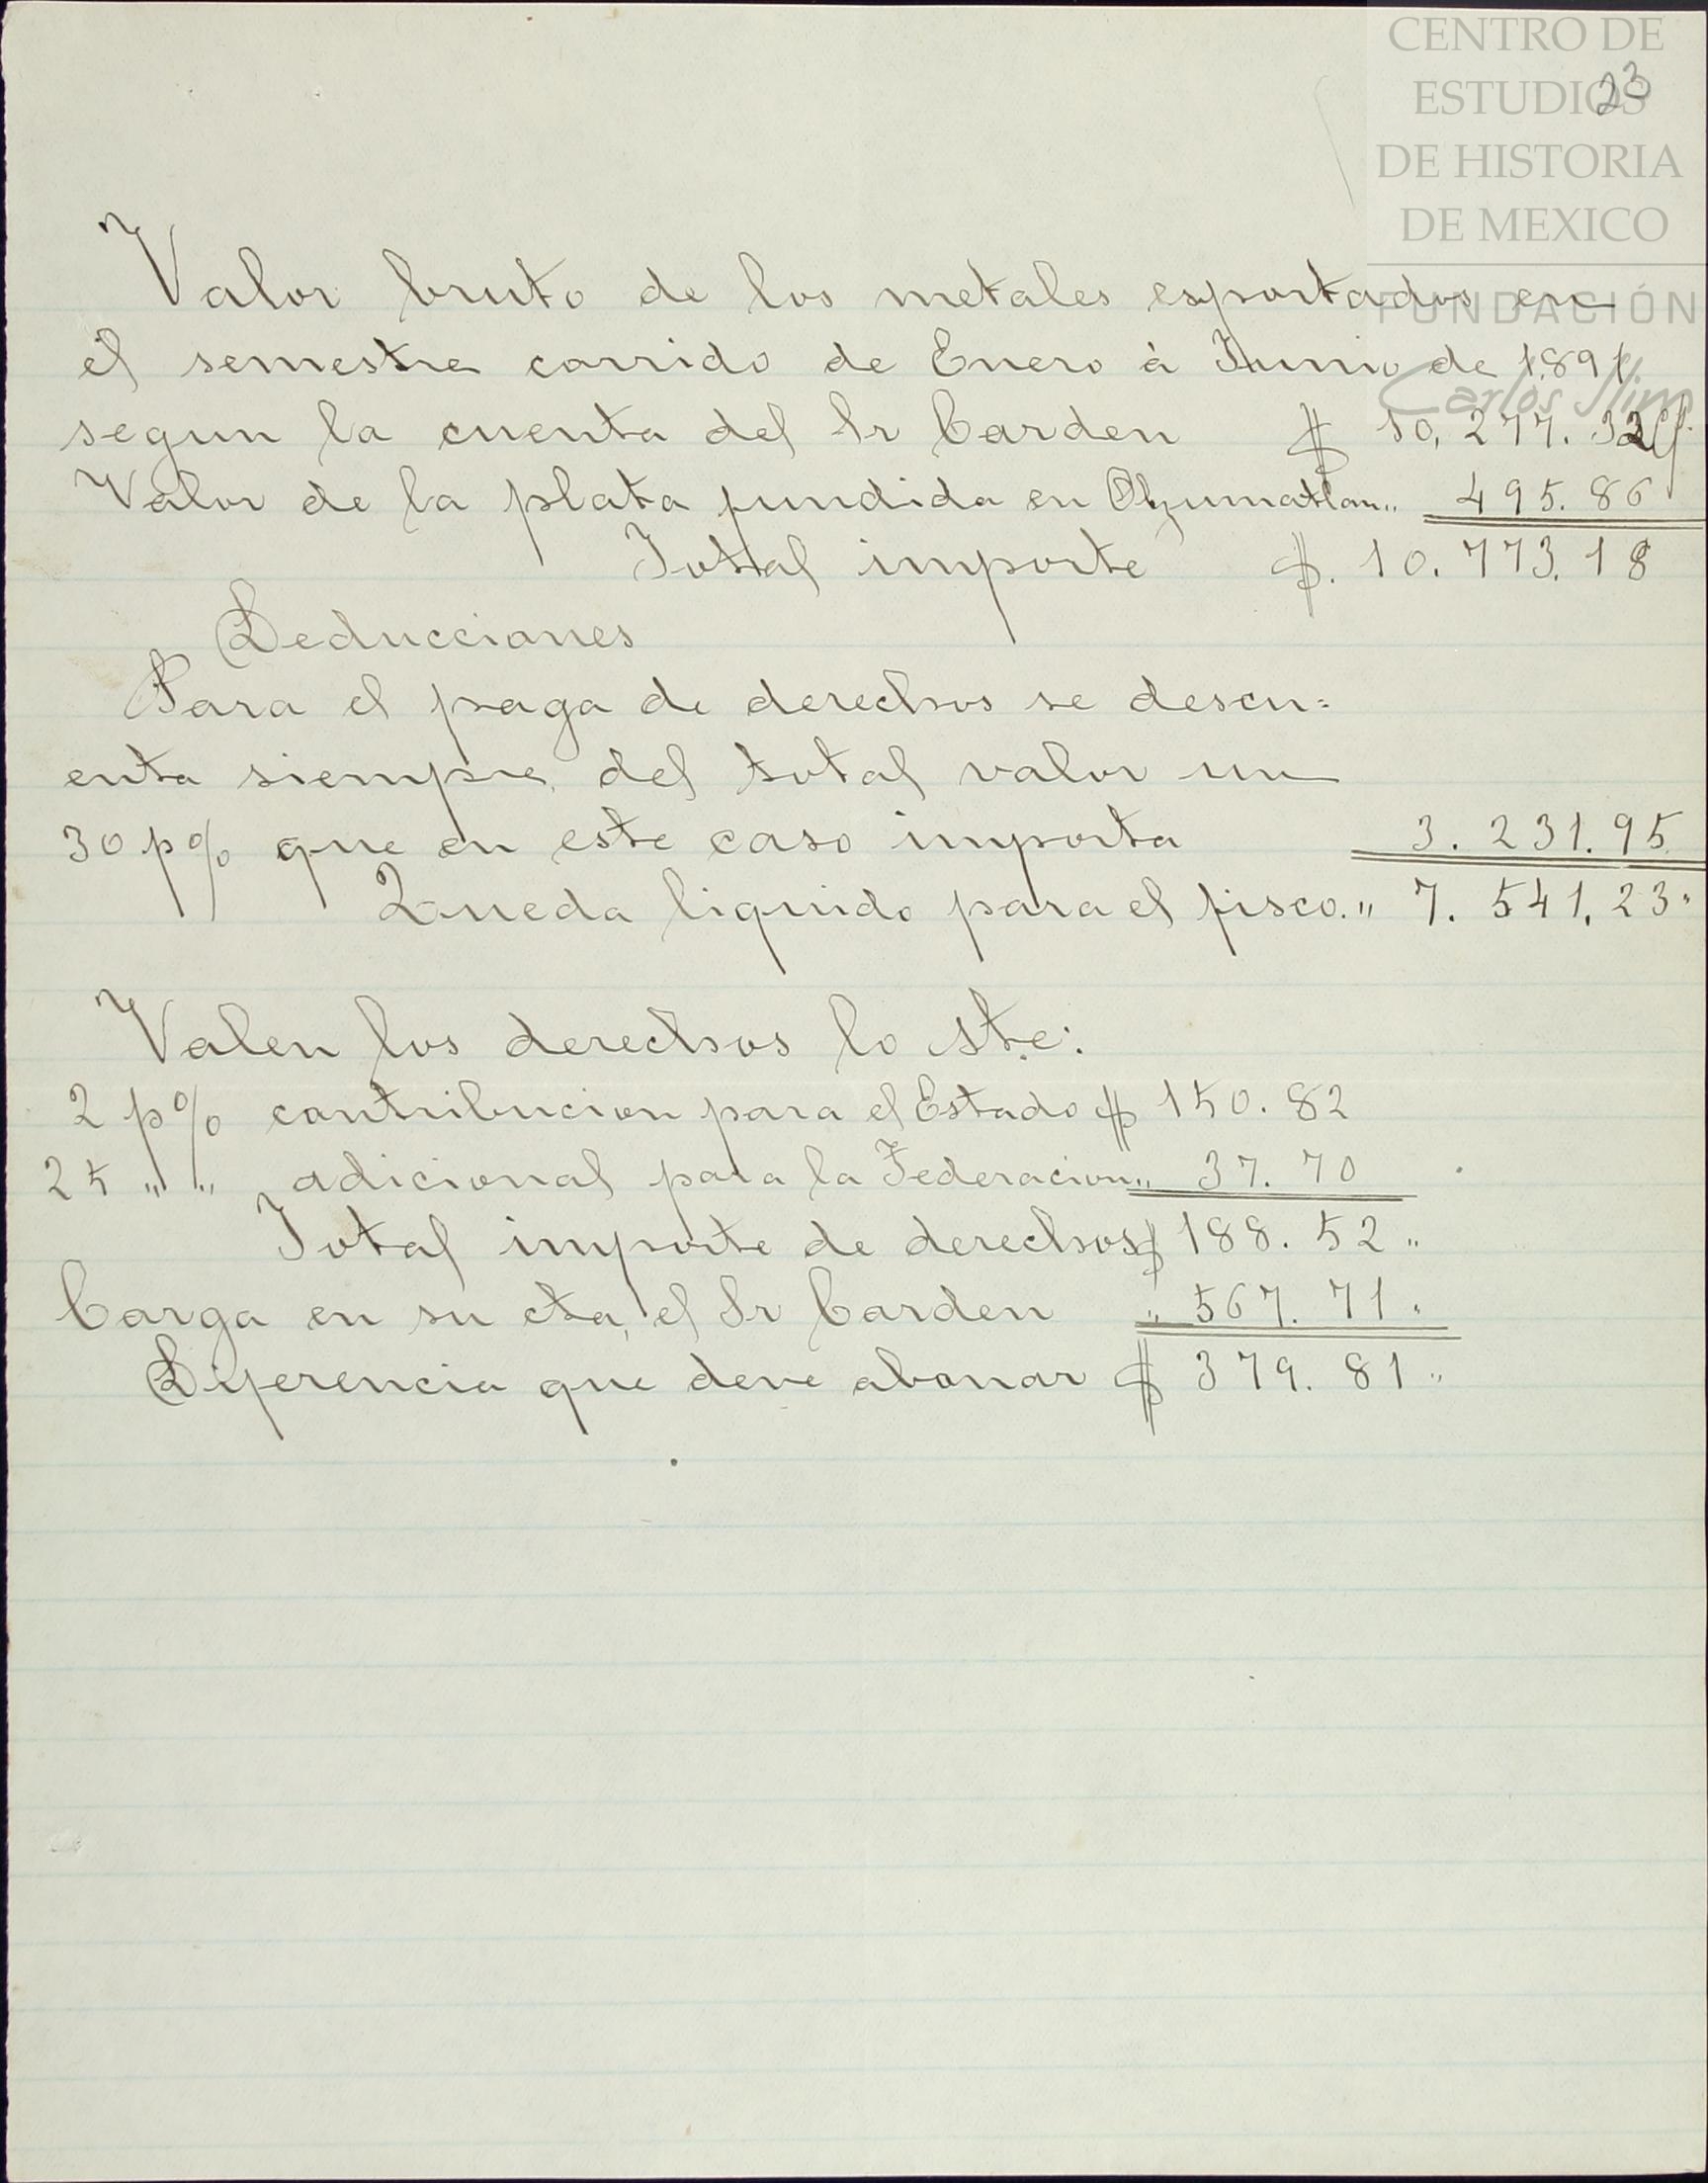 CENTRO DE
ESTUDIOS
DE HISTORIA
DE MEXICO
FUNDACIÓN
Carlos Slim
23
Valor bruto de los metales esportados en
el semestre corrido de Enero á Junio de 1891
segun la cuenta del Sr Carden $ 10,277.32
Valor de la plata fundida en Ozumatlan " 495.86
Total importe $. 10.773.18
Deducciones
Para el paga de derechos se descu=
enta siempre del total valor un
30 p% que en este caso importa 3.231.95
Queda liquido para el fisco. " 7.541,23"
Valen los derechos lo ste:
2 p% contribucion para el Estado $ 150.82
25 " " adicional para la Federacion " 37.70
Total importe de derechos $ 188.52 "
Carga en su cta, el Sr Carden " 567.71 "
Diferencia que deve abonar $ 379.81 "